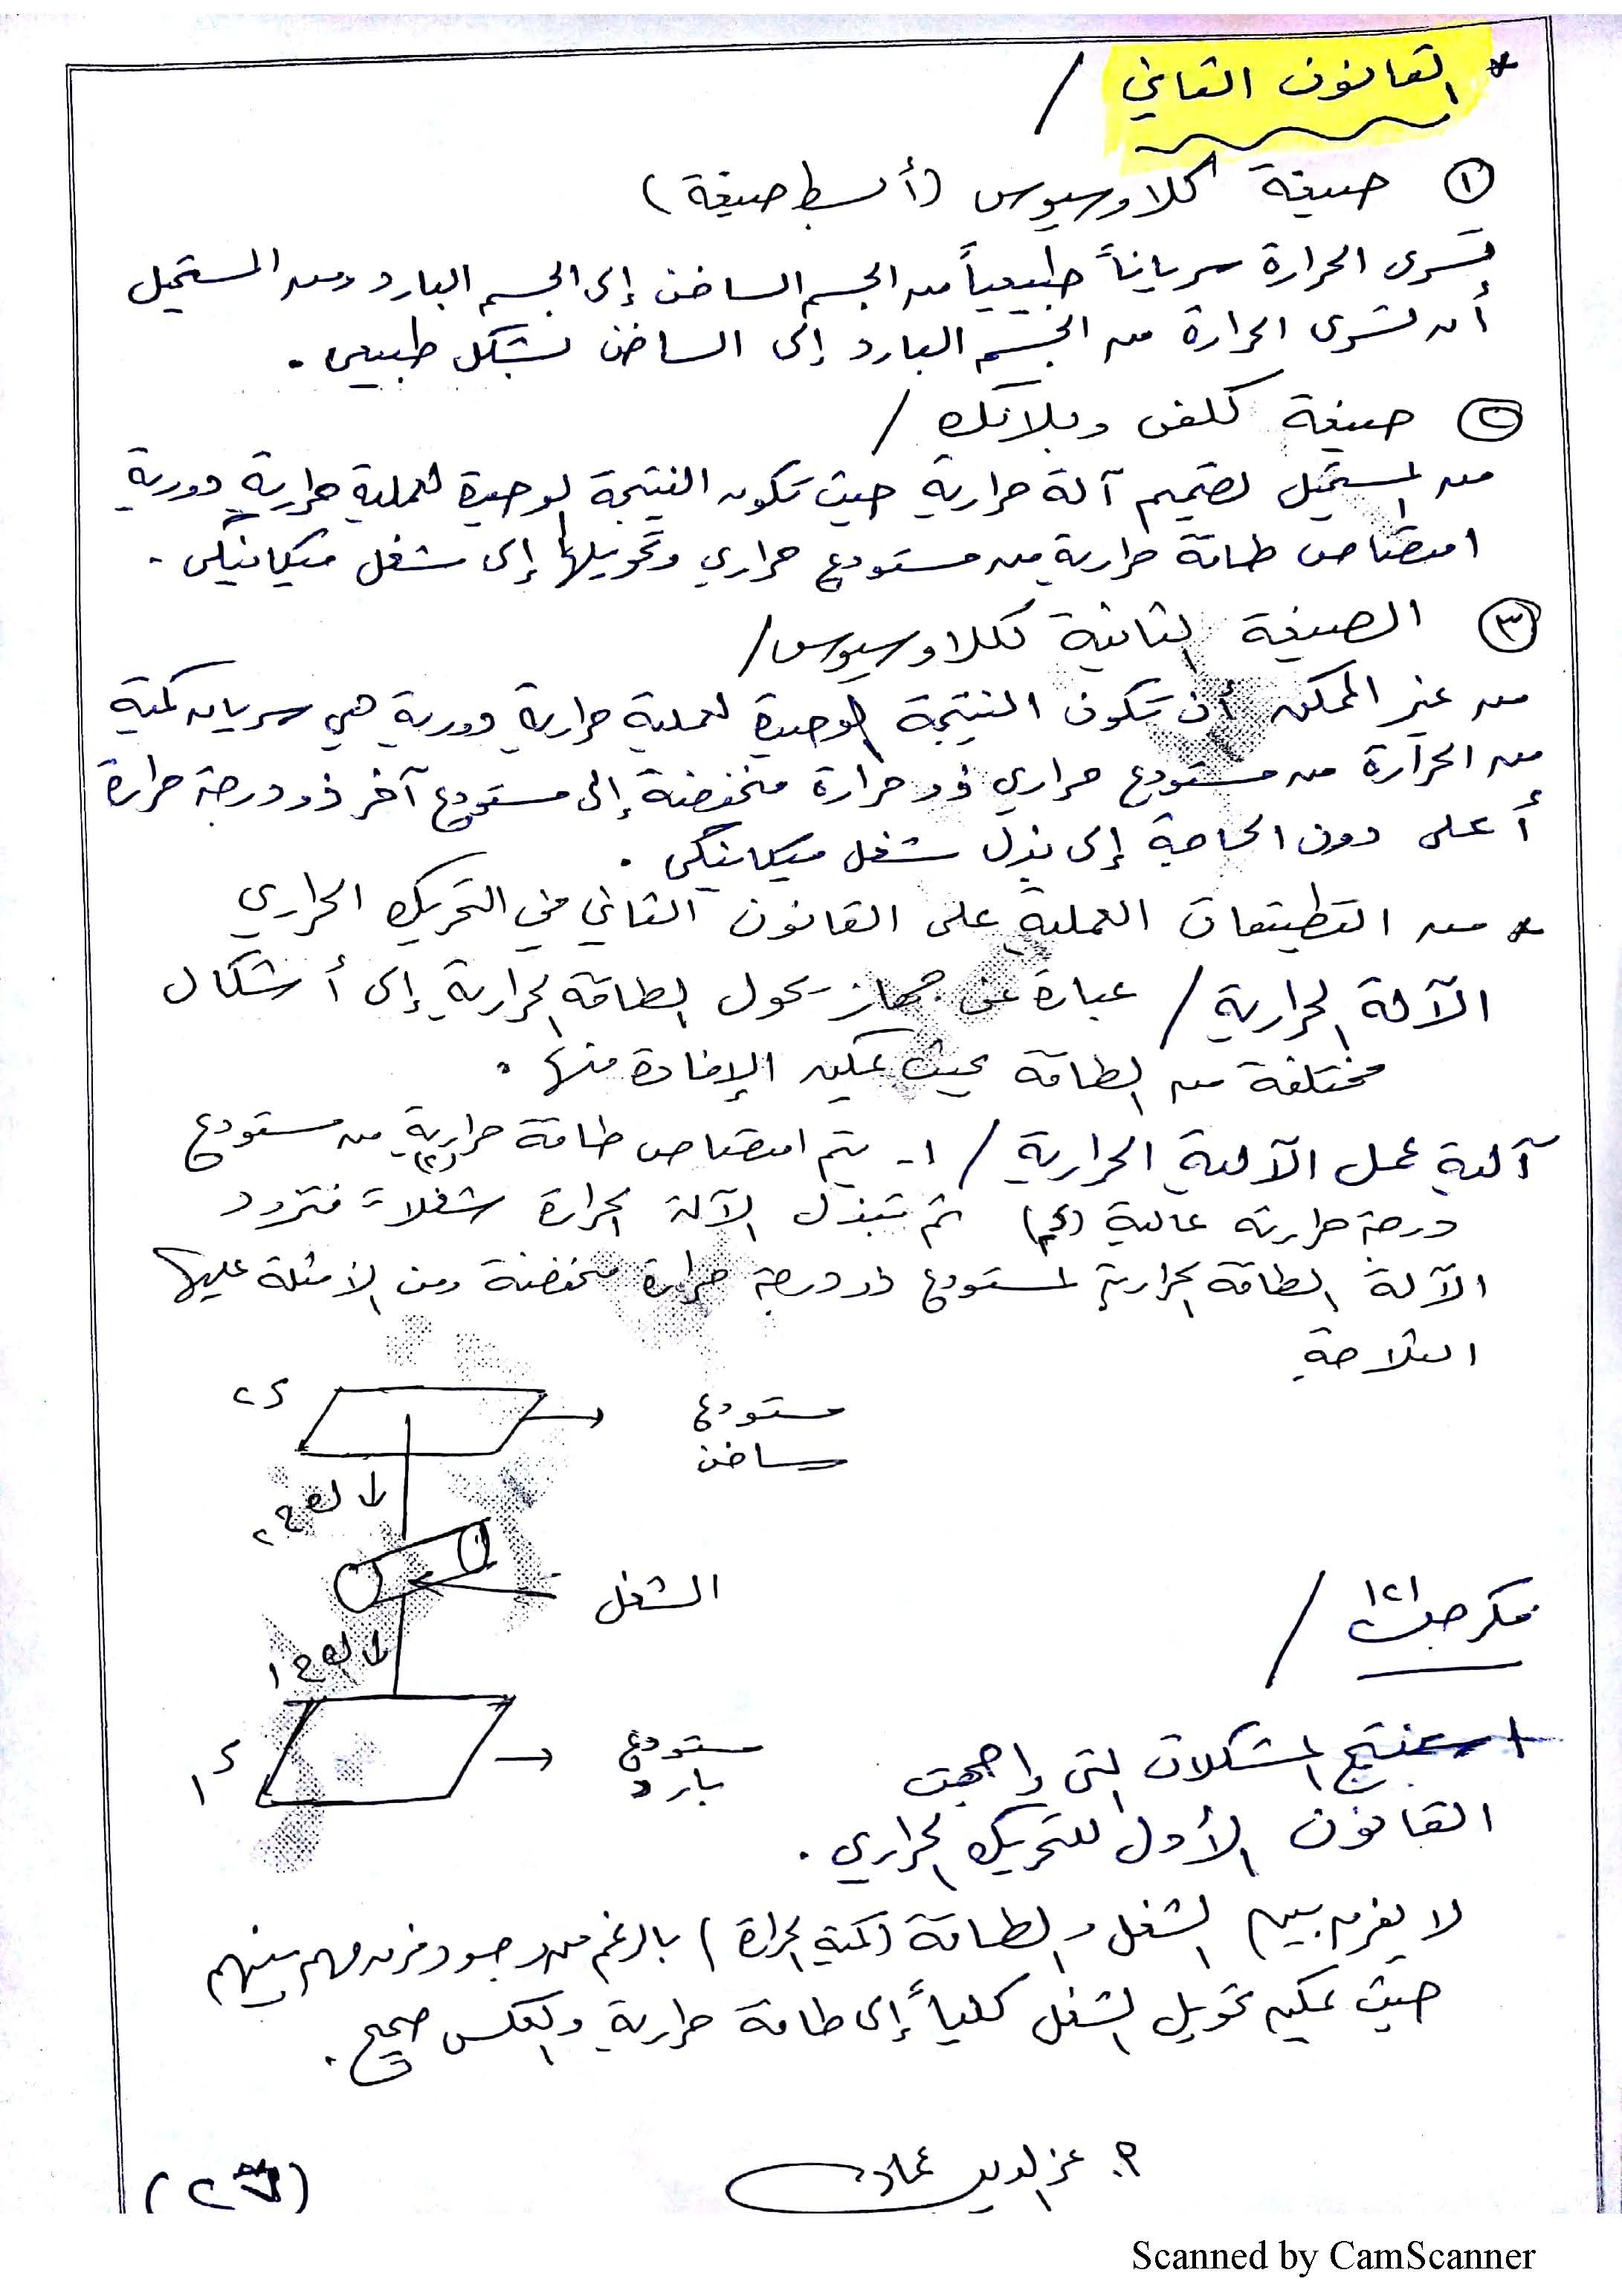 * القانون الثاني /
① صيغة كلاوسيوس (أبسط صيغة)
تسرى الحرارة سرياناً طبيعياً من الجسم الساخن إلى الجسم البارد ومن المستحيل
أن تسرى الحرارة من الجسم البارد إلى الساخن بشكل طبيعى .
② صيغة كلفن وبلانك /
من المستحيل تصميم آلة حرارية حيث تكون النتيجة الوحيدة لعملية حرارية دورية
امتصاص طاقة حرارية من مستودع حراري وتحويلها إلى شغل ميكانيكى .
③ الصيغة الثانية لكلاوسيوس /
من غير الممكن أن تكون النتيجة الوحيدة لعملية حرارية دورية هي سريان كمية
من الحرارة من مستودع حراري ذو حرارة منخفضة إلى مستودع آخر ذو درجة حرارة
أعلى دون الحاجة إلى بذل شغل ميكانيكى .
* من التطبيقات العملية على القانون الثاني في التحريك الحراري
الآلة الحرارية / عبارة عن جهاز يحول الطاقة الحرارية إلى أشكال
مختلفة من الطاقة بحيث يمكن الإفادة منها .
آلية عمل الآلية الحرارية / ١- يتم امتصاص طاقة حرارية من مستودع
درجة حرارته عالية (د٢) ثم تبذل الآلة الحرارة شغلاً فتزود
الآلة الطاقة الحرارية لمستودع ذو درجة حرارة منخفضة ومن الأمثلة عليها
الثلاجة
د٢
مستودع
ساخن
كح٢
الشغل
كح١
د١
مستودع
بارد
فكر صـ١٢١ /
استنتج المشكلات التى واجهت
القانون الأول للتحريك الحراري .
لا يفرق بين الشغل والطاقة (كمية الحرارة) بالرغم من وجود فرق مهم بينهم
حيث يمكن تحويل الشغل كلياً إلى طاقة حرارية والعكس صحيح .
م. عز الدين
Scanned by CamScanner